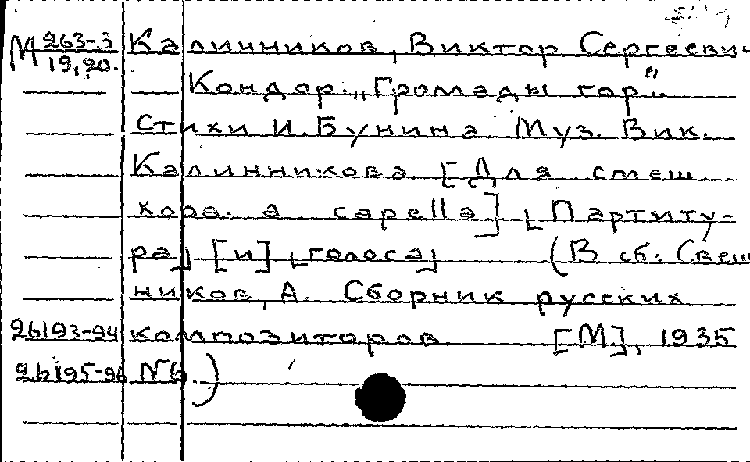 М 263-3 Калинников, Виктор Сергеевич
19,20.
Кондор. „Громады гор".
Стихи И. Бунина. Муз. Вик.
Калинникова. [Для смеш.
хора. a capella] [Партиту-
ра] [и] [голоса] (В сб. Свеш
ников, А. Сборник русских
26193-94 композиторов. [М], 1935
26195-96 №6.)